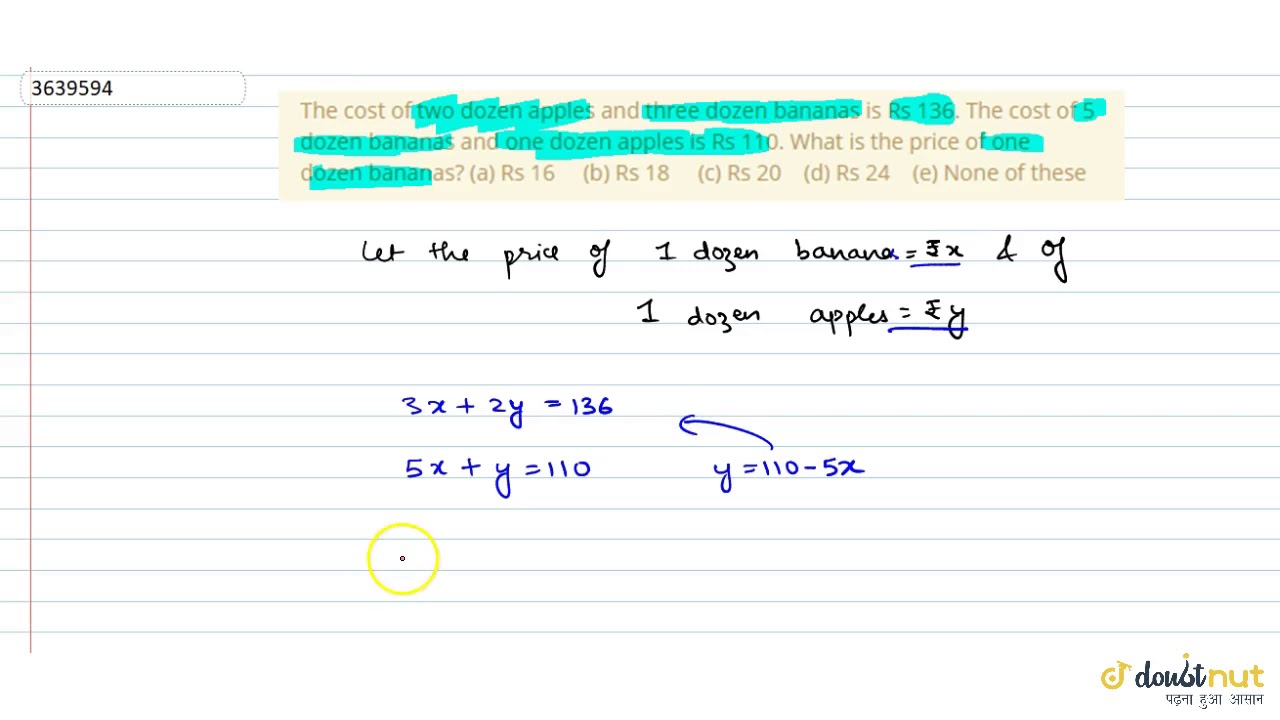 3639594
The cost of two dozen apples and three dozen bananas is Rs 136. The cost of 5
dozen bananas and one dozen apples is Rs 110. What is the price of one
dozen bananas? (a) Rs 16 (b) Rs 18 (c) Rs 20 (d) Rs 24 (e) None of these
Let the price of 1 dozen banana = ₹ x & of
1 dozen apples = ₹ y
3x + 2y = 136
5x + y = 110 y = 110 - 5x
doubtnut
पढ़ना हुआ आसान